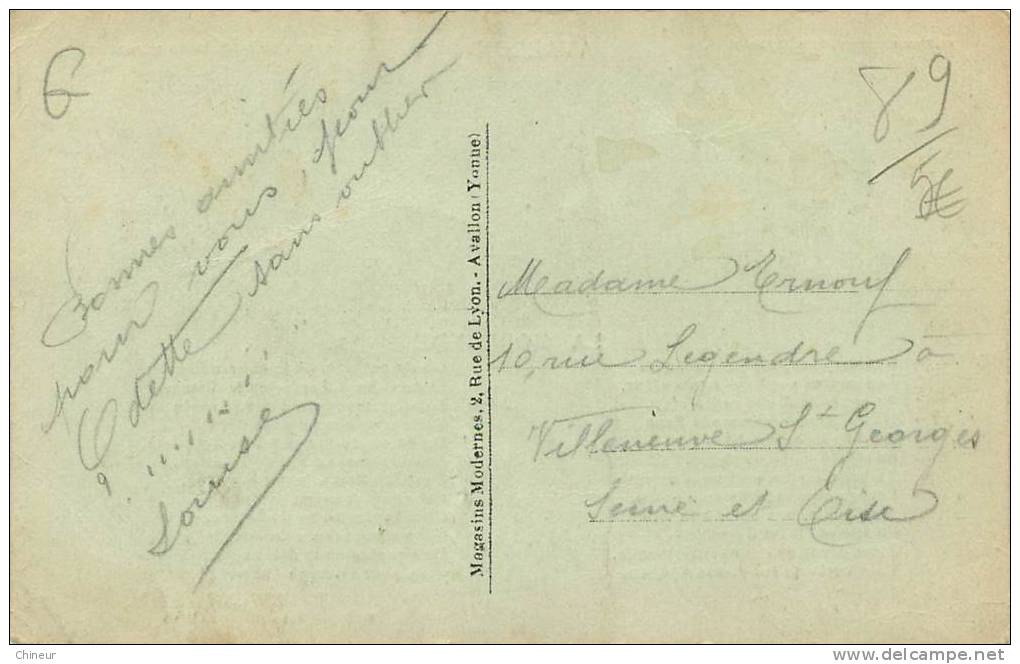 6
Bonnes amitiés
pour vous, pour
Odette sans oublier
? .........
Louise
Magasins Modernes, 2, Rue de Lyon. - Avallon (Yonne)
89
5€
Madame Ernouf
10, rue Legendre à
Villeneuve St Georges
Seine et Oise
Chineur
www.delcampe.net